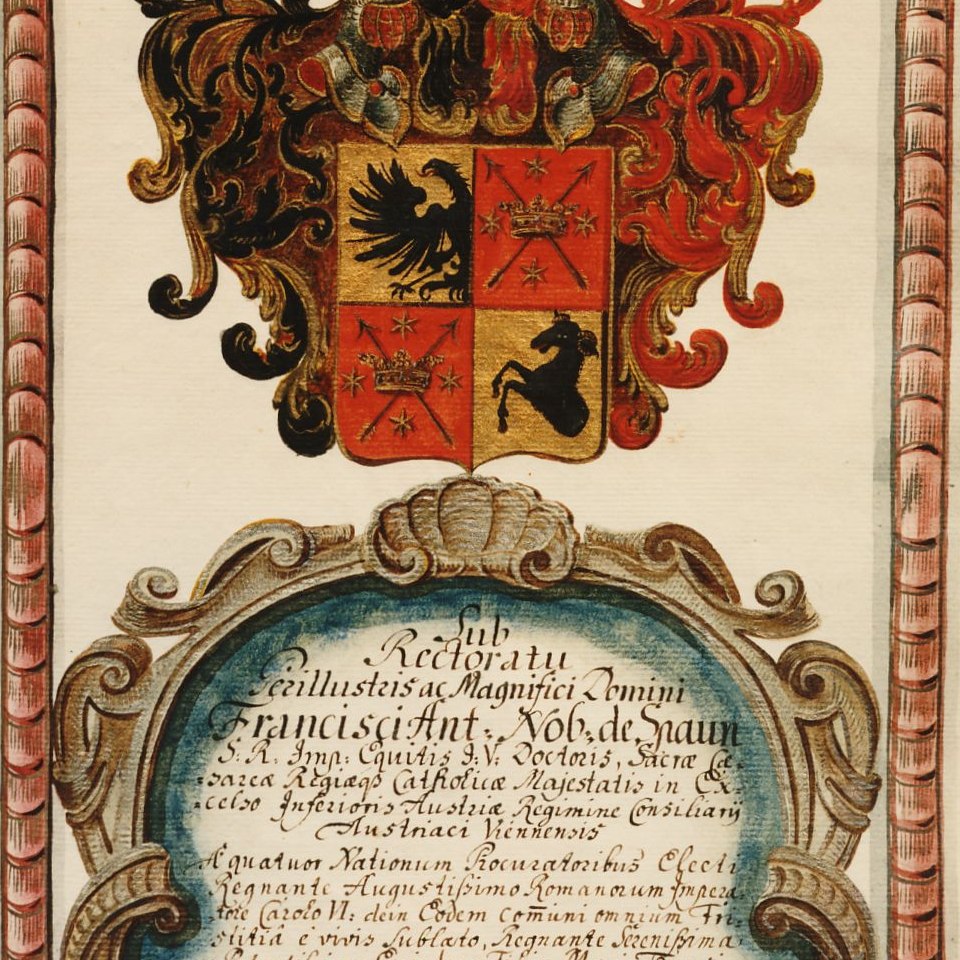 Sub
Rectoratu
Perillustris ac Magnifici Domini
Francisci Ant: Nob: de Spaun
S: R: Imp: Equitis J: V: Doctoris, Sacræ Cæ-
sareæ Regiæqȝ Catholicæ Majestatis in Ex-
celso Inferioris Austriæ Regimine Consiliarij
Austriaci Viennensis
Æ quatuor Nationum Procuratoribus Electi
Regnante Augustissimo Romanorum Impera-
tore Carolo VI: dein Eodem com̅uni omnium Tri-
stitiâ è vivis Sublato, Regnante Serenissima